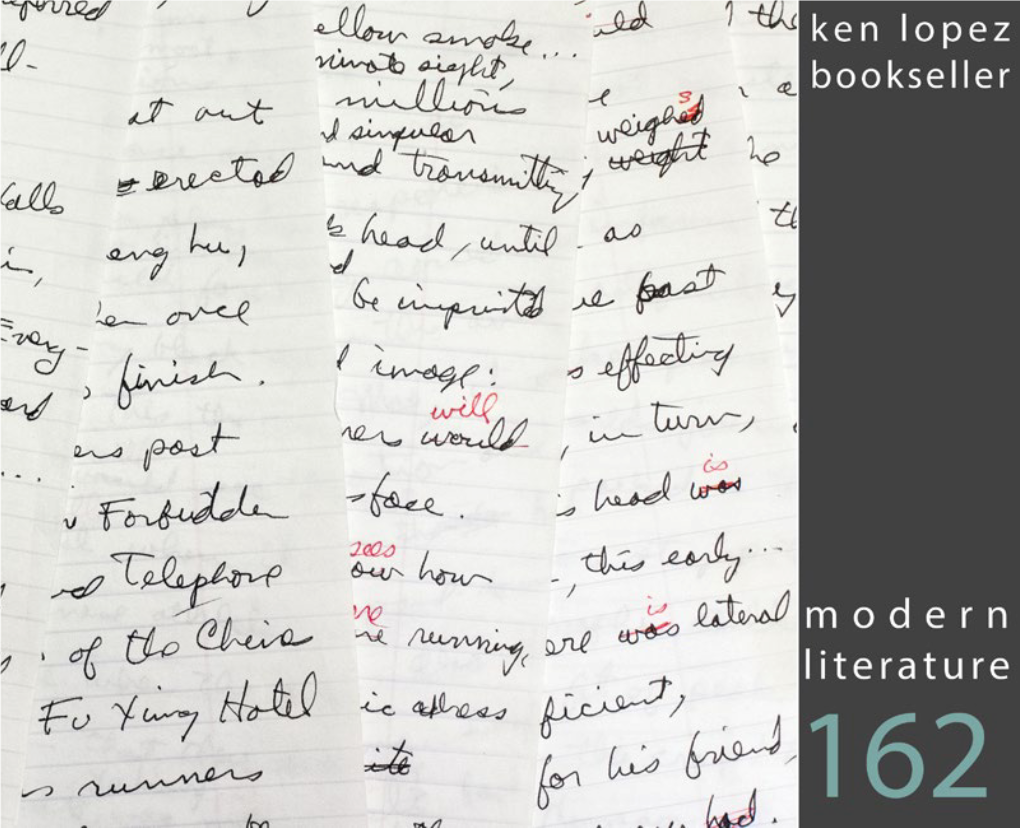 ken lopez
bookseller
ll-
Calls
is,
Every-
...
at out
erected
eng hu,
en over
finish.
ers post
Forbidden
Telephone
of the
Fu Xing Hotel
s runners
ellow smoke...
sight,
millions
d singular
and transmitting
head, until
be imprinted
image:
will
ners would
-face.
sees
ow how
ne running,
ic
uld
s
weighed
weight
as
ie past
s effecting
, in turn,
is
s head was
, this early...
is
ere was lateral
ficient,
for his friend,
had.
the
modern
literature
162